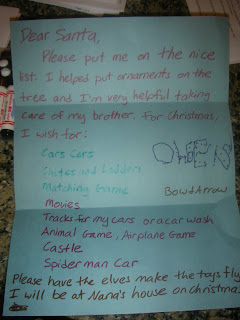 Dear Santa,
Please put me on the nice
list. I helped put ornaments on the
tree and I'm very helpful taking
care of my brother. For Christmas,
I wish for:
Cars Cars
Chutes and Ladders
Matching Game
Movies
Tracks for my cars or a car wash
Animal Game, Airplane Game
Castle
Spiderman Car
Bow & Arrow
Please have the elves make the toys fly
I will be at Nana's house on Christmas.